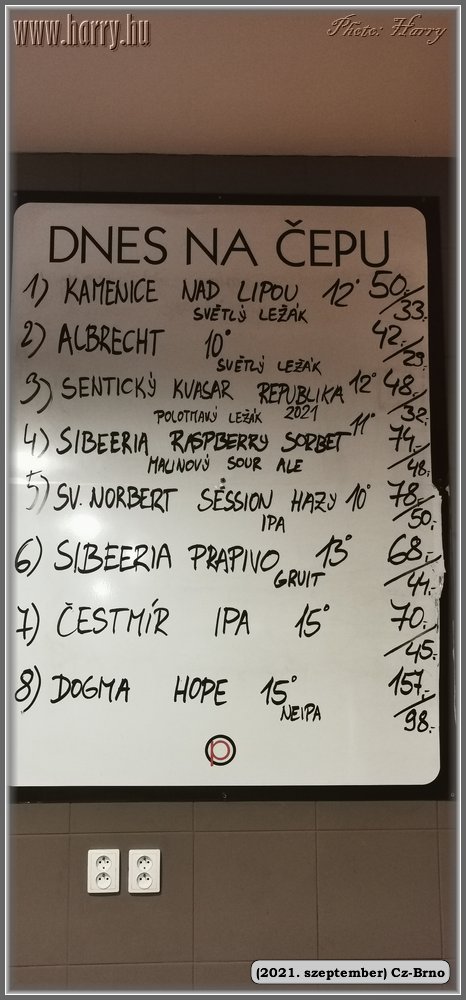 www.harry.hu
Photo: Harry
DNES NA ČEPU
1) KAMENICE NAD LIPOU 12° 50.-/33.-
SVĚTLÝ LEŽÁK
2) ALBRECHT 10° 42.-/29.-
SVĚTLÝ LEŽÁK
3) SENTICKÝ KVASAR REPUBLIKA 12° 48.-/32.-
POLOTMAVÝ LEŽÁK 2021
4) SIBEERIA RASPBERRY SORBET 11° 74.-/48.-
MALINOVÝ SOUR ALE
5) SV. NORBERT SESSION HAZY 10° 78.-/50.-
IPA
6) SIBEERIA PRAPIVO 13° 68.-/44.-
GRUIT
7) ČESTMÍR IPA 15° 70.-/45.-
8) DOGMA HOPE 15° 157.-/98.-
NEIPA
(2021. szeptember) Cz-Brno